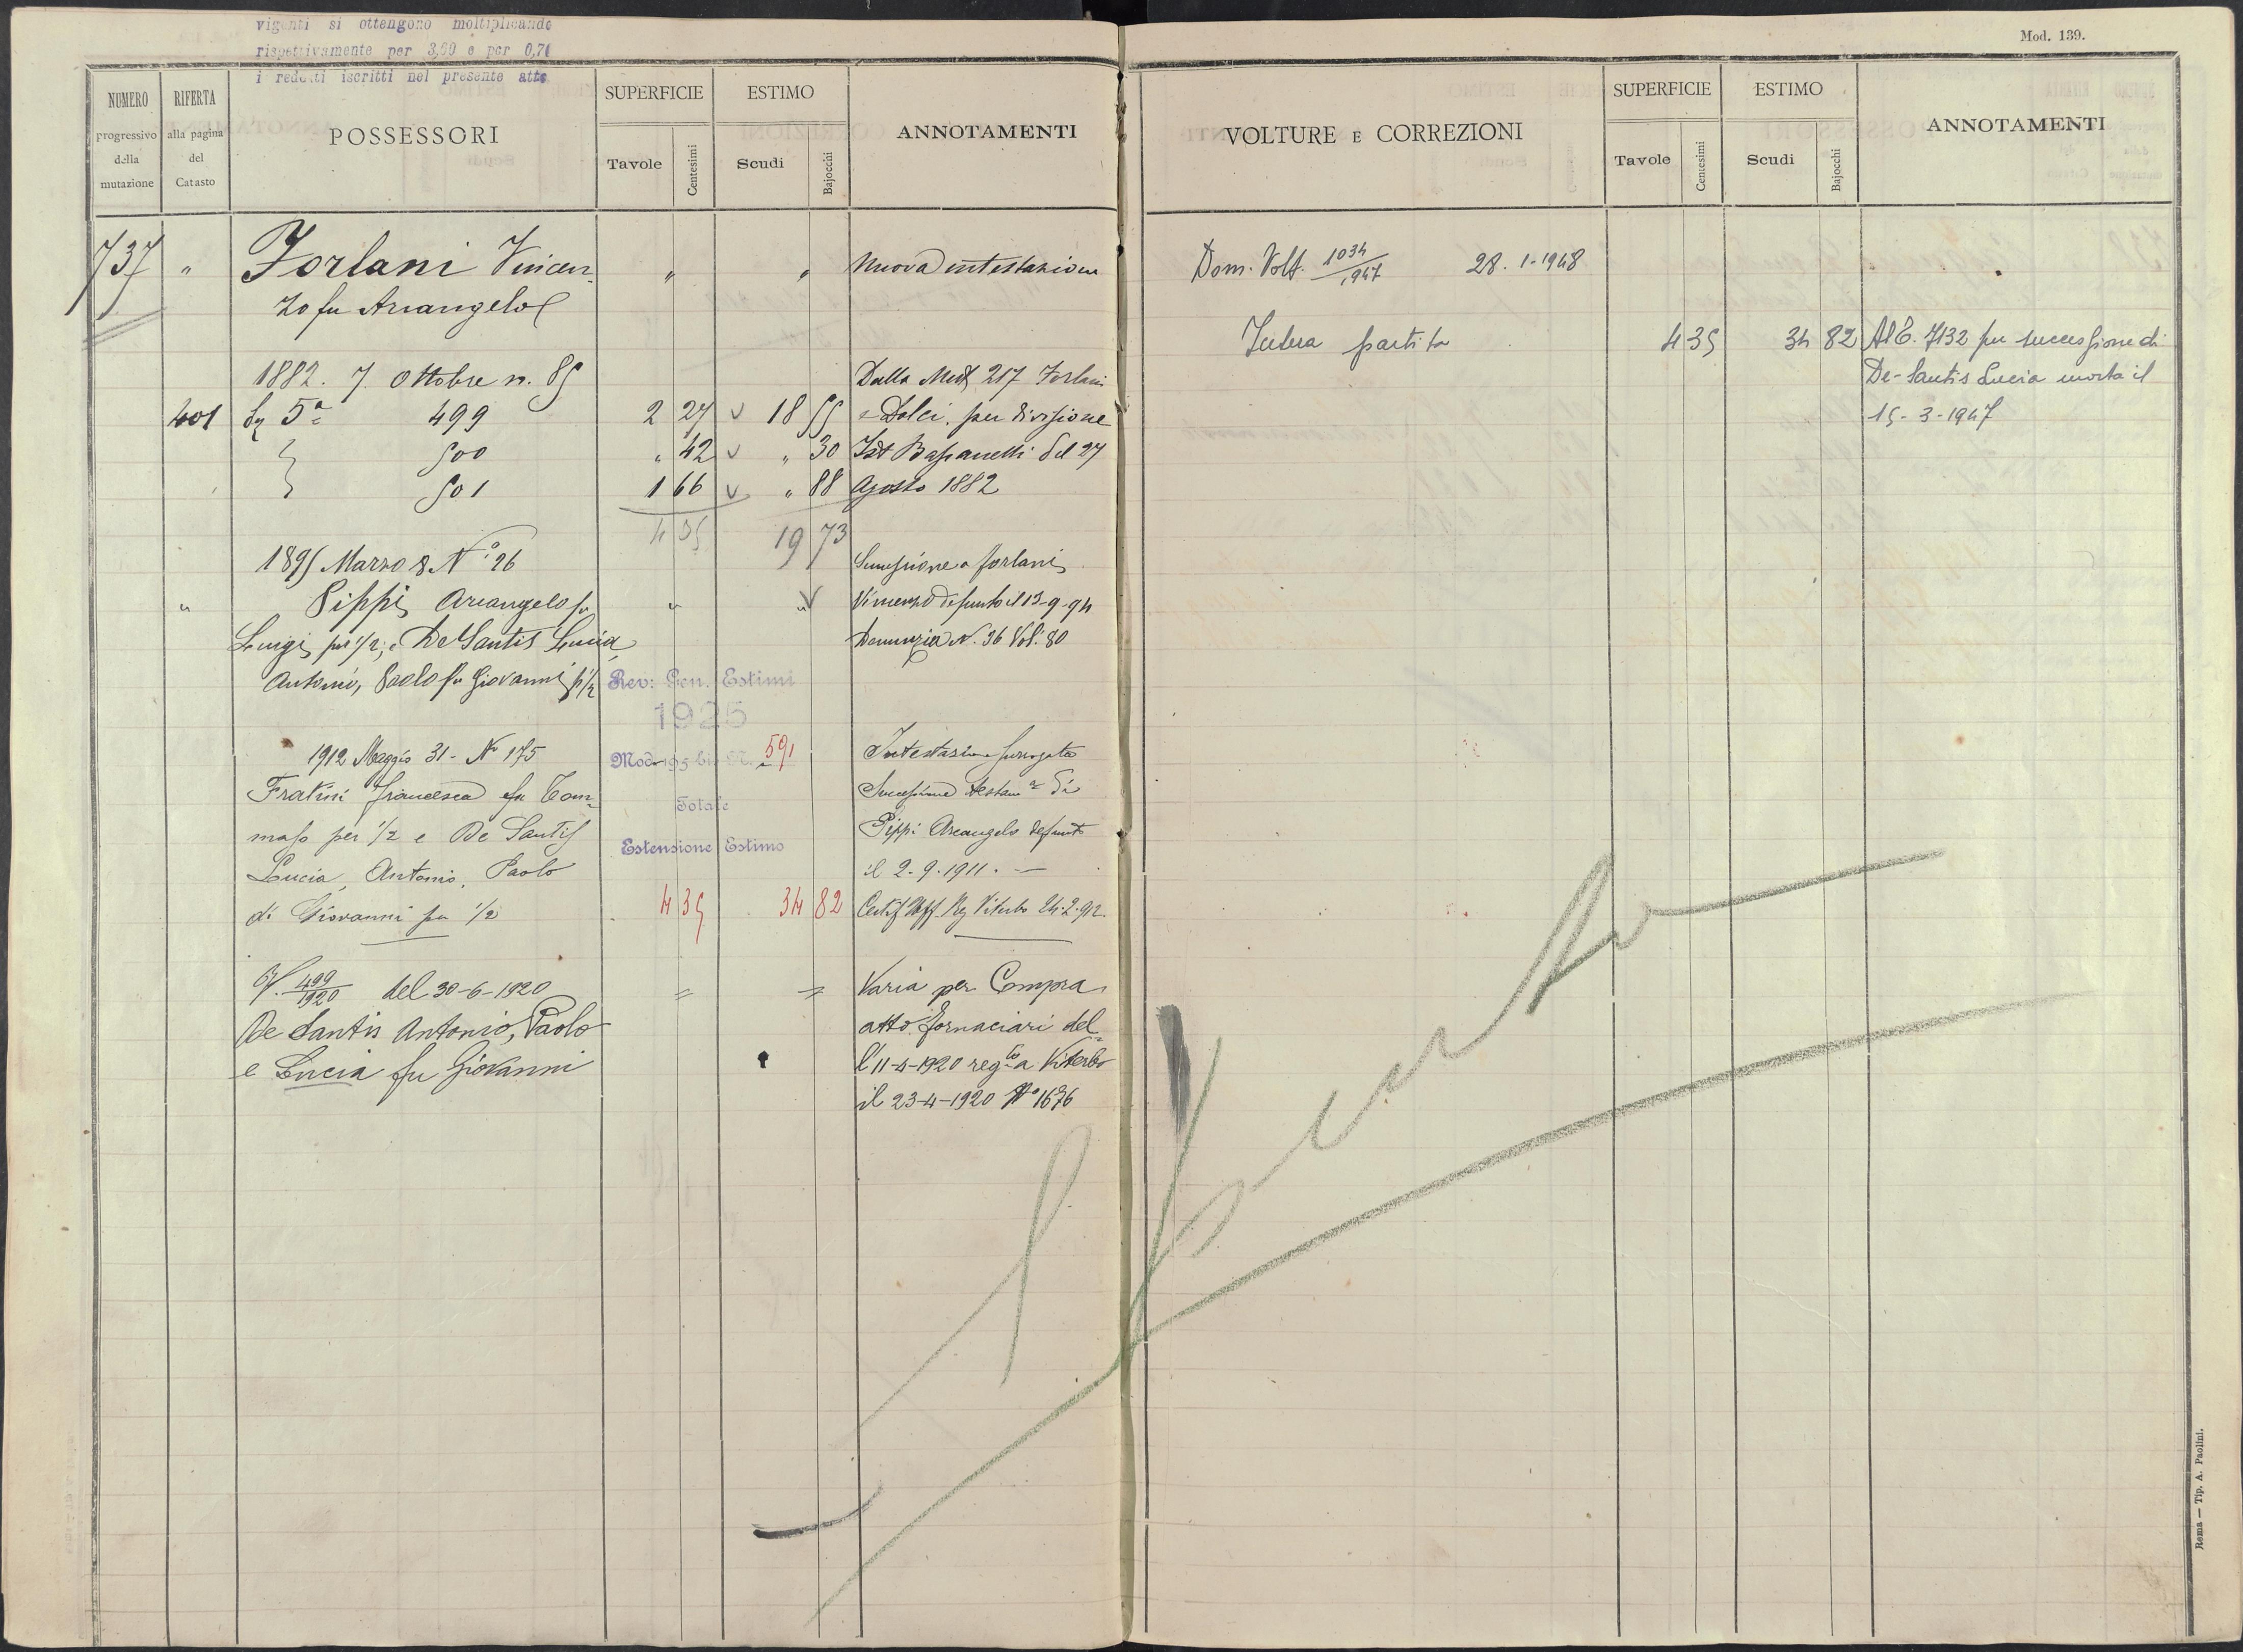 vigenti si ottengono moltiplicando
rispettivamente per 3,60 e per 0,70
i redditi iscritti nel presente atto
NUMERO progressivo della mutazione
RIFERTA alla pagina del Catasto
POSSESSORI
SUPERFICIE
Tavole Centesimi
ESTIMO
Scudi Bajocchi
ANNOTAMENTI
737 " Forlani Vincen= " " Nuova intestazione
zo fu Arcangelo
1882. 7. Ottobre n. 85 Dalla Mut 217 Forlani
401 Sez 5ª 499 2 27 v 18 55 e Dolci, per divisione
500 " 42 v " 30 Ist Bassanelli del 27
501 1 66 v " 88 Agosto 1882
4 35 19 73
1895 Marzo 8 N° 26 Successione a Forlani
" Pippi Arcangelo fu " " Vincenzo defunto il 13-9-94
Luigi per 1/2, e De Santis Lucia Denunzia N. 36 Vol. 80
Antonio, Paolo fu Giovanni p 1/2
Rev: Gen. Estimi
1925
1912 Maggio 31 - N° 175 Mod. 195 bis N. 591 Intestazione surrogata
Fratini Francesca fu Tom= Totale Successione testam.ª di
maso per 1/2 e De Santis Estensione Estimo Pippi Arcangelo defunto
Lucia, Antonio, Paolo il 2.9.1911. —
di Giovanni per 1/2 4 35 34 82 Certif Uff Reg Viterbo 24.2.912.
V. 499/1920 del 30-6-1920 = = Varia per Compra
De Santis Antonio, Paolo atto Fornaciari del=
e Lucia fu Giovanni l'11-4-1920 reg.to a Viterbo
il 23-4-1920 N° 1676
Mod. 139.
VOLTURE E CORREZIONI
SUPERFICIE
Tavole Centesimi
ESTIMO
Scudi Bajocchi
ANNOTAMENTI
Dom. Volt. 1034/1947 28.1-1948
Intera partita 4 35 34 82 Al C. 7132 per successione di
De-Santis Lucia morta il
15-3-1947
Scarto
Roma — Tip. A. Paolini.